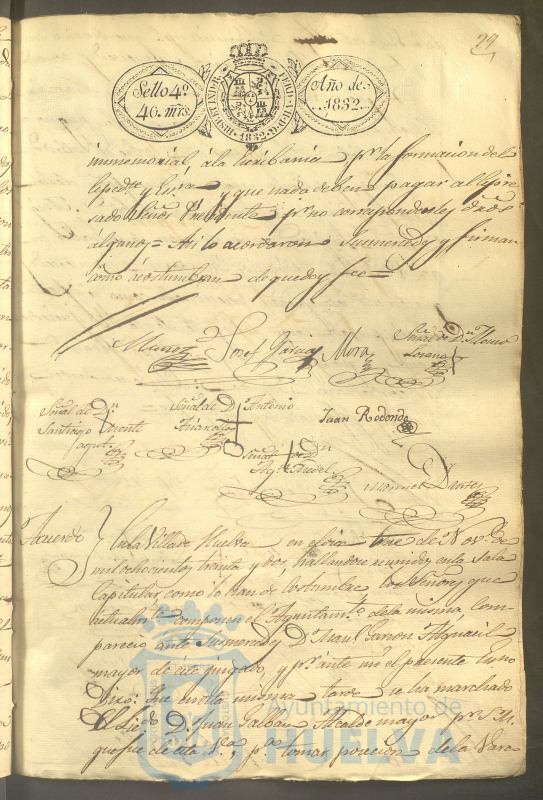 29
Sello 4º
40. mrs.
HISP. ET IND. R. FERD. VII. D. G. 1832.
Año de
1832.
inmemorial, á la Escribania pr. la formacion del
Espedte. y Esra. y que nada deben pagar al Espre-
sado Señor Presidente pr. no corresponderle dros.
algunos = Asi lo acordaron Sus mercedes y firman
como acostumbran de que doy fee =
Muñoz
Josef Garcia
Mora
Señal de Dn. Alonso
Lorenzo
Señal de Dn.
Santiago Oronte
Señal de Dn. Antonio
Juan Redondo
Señal de Dn.
Manuel Dantes
Acuerdo
En la Villa de Huelva en el dia trece de Nove. de
mil ochocientos treinta y dos, hallandose reunidos en la Sala
Capitular como lo han de costumbre los Señores que
actualmte. componen el Ayuntamto. de la misma Com-
parecio ante Sus mercedes Dn. Juan Garzon Alguacil
mayor de este juzgado, y pr. ante mi el presente Esno.
Dixo: Que en esta misma tarde se ha marchado
el Licdo. Dn. Juan Galban Alcalde mayor pr. S.M.
que fue de esta Va., pa. tomar posesion de la Vara
Ayuntamiento de
HUELVA